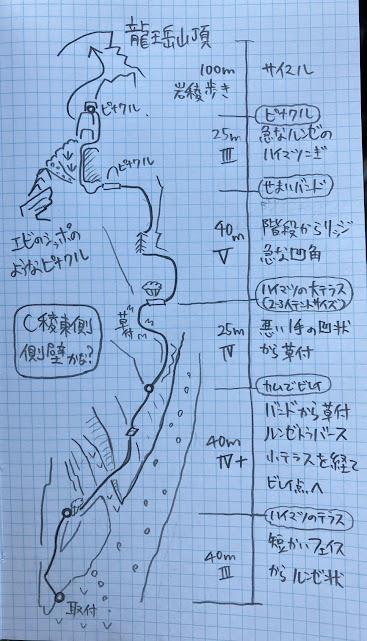 龍王岳山頂
100m
岩稜歩き
サイエル
ピナクル
ピナクル
25m
III
急なルンゼの
ハイマツこぎ
ピナクル
せまいバンド
エビのシッポの
ようなピナクル
40m
V
階段からリッジ
急な凹角
ハイマツの大テラス
(2-3人テントサイズ)
C稜東側
側壁かな?
草付
25m
IV
悪い1手の凹状
から草付
カムでビレイ
40m
IV+
バンドから草付
ルンゼトラバース
小テラスを経て
ビレイ点へ
ハイマツのテラス
40m
III
短かいフェイス
からルンゼ状
取付